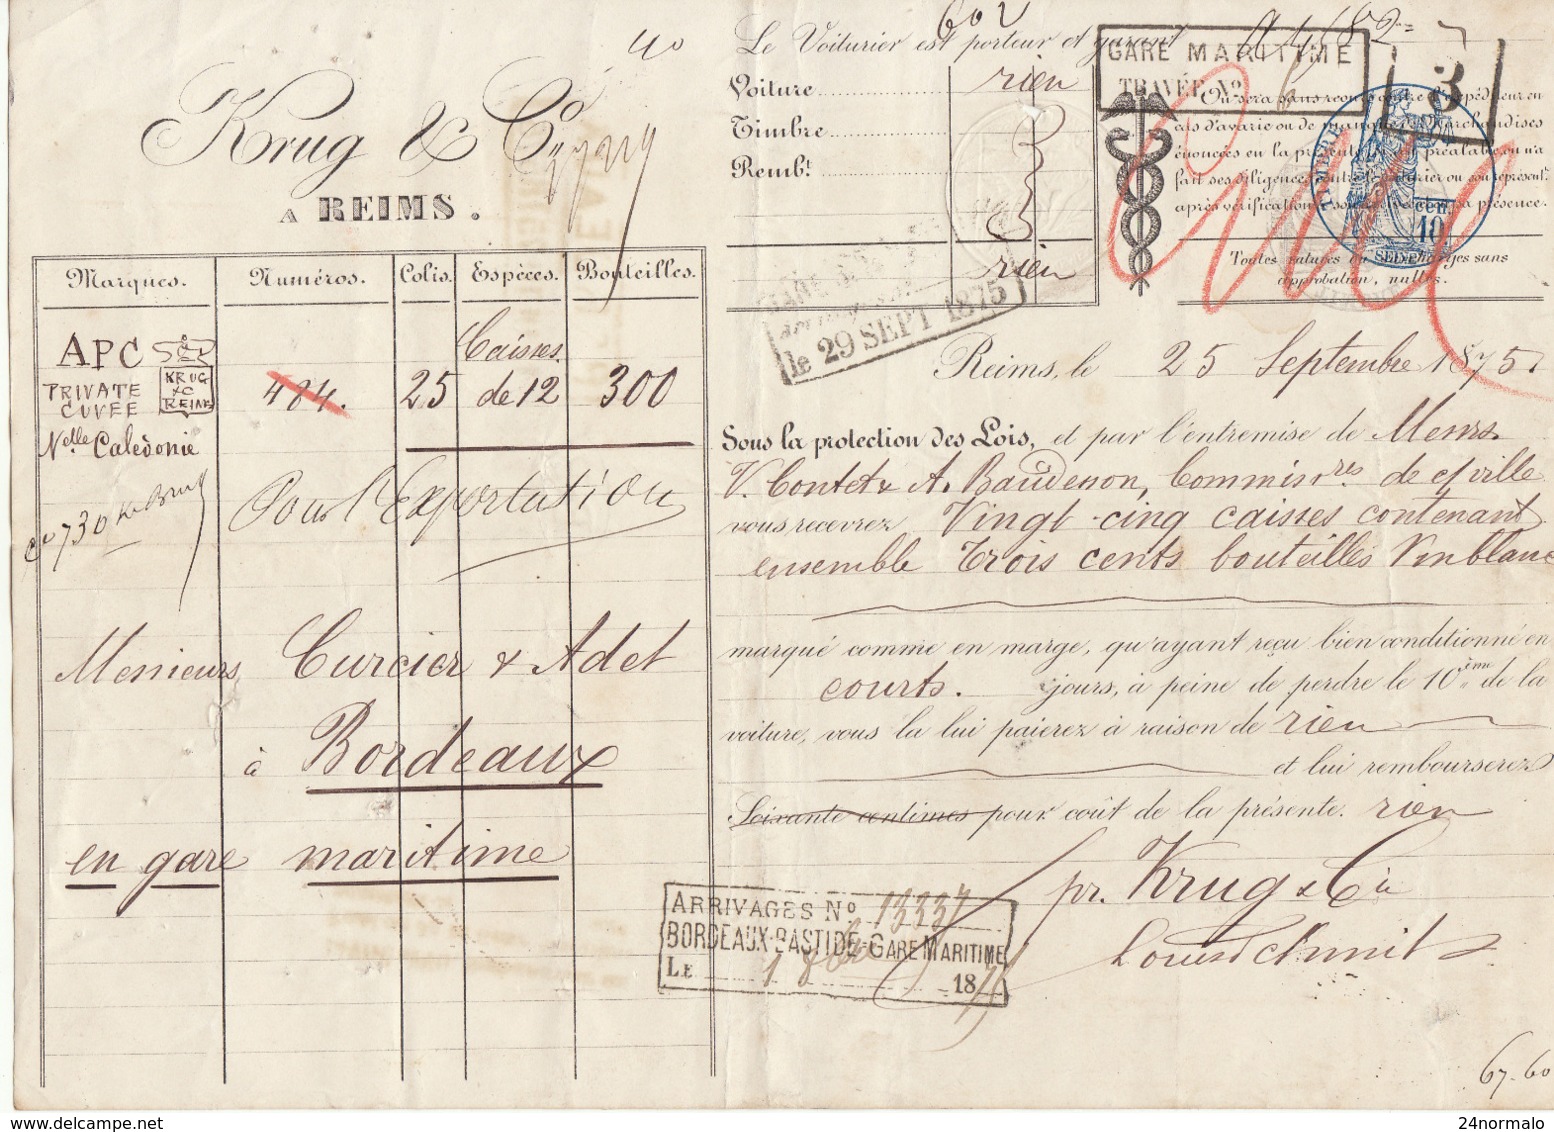 602
40
Krug & Cie
A REIMS.
Le Voiturier est porteur et garant
Voiture rien
Timbre
Rembt. rien
GARE MARITIME
TRAVÉE No 6
3
Où sera sans recours contre l'expéditeur en
cas d'avarie ou de manque de Marchandises
énoncées en la présente si au préalable on n'a
fait ses diligences contre le Voiturier ou son représentt.
après vérification
sa présence.
Toutes ratures ou surcharges sans
approbation, nulles.
10 cen.
SEINE
le 29 SEPT 1875
Marques. Numéros. Colis. Espèces. Bouteilles.
APC
PRIVATE
CUVÉE
KRUG
& C
REIMS
Nelle Calédonie
484. 25 Caisses de 12 300
730
Pour l'Exportation
Messieurs Curcier & Adet
à Bordeaux
en gare maritime
Reims, le 25 Septembre 1875
Sous la protection des Lois, et par l'entremise de Messrs
V. Contet & A. Baudesson, Commisres de cy ville
vous recevrez Vingt-cinq caisses contenant
ensemble Trois cents bouteilles Vin blanc
marqué comme en marge, qu'ayant reçu bien conditionné en
courts. jours, à peine de perdre le 10ème de la
voiture, vous la lui paierez à raison de rien
et lui rembourserez
Soixante centimes pour coût de la présente. rien
pr. Krug & Cie
Louis Schmit
ARRIVAGES No 13337
BORDEAUX-BASTIDE-GARE MARITIME
LE 1 8bre 1875
67-60
24normalo